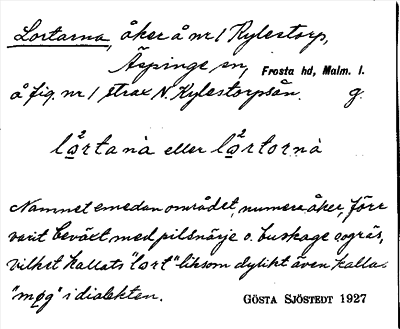 Lortarna, åker å nr 1 Kylestorp,
Äspinge sn, Frosta hd, Malm. l.
å fig. nr 1 strax N. Kylestorpsån. g.
lo²rtanà eller lo²rtornà
Namnet emedan området, numera åker, förr
varit beväxt med pilsnärje o. buskage o gräs,
vilket kallats "lort" liksom dylikt även kallas
"møg" i dialekten.
GÖSTA SJÖSTEDT 1927